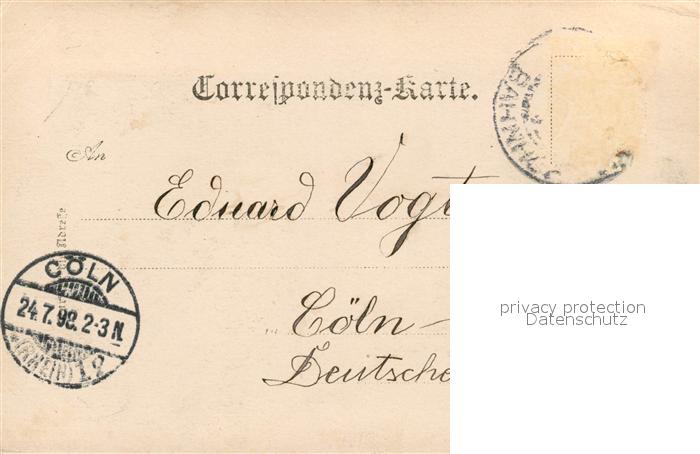 Correspondenz-Karte.
An
Eduard Vogt
Cöln-
Deutsche
Adresse
CÖLN
24.7.98. 2-3 N.
(RHEIN) 1 2
BAHNH
privacy protection
Datenschutz